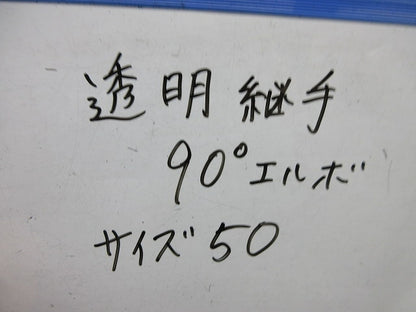 透明継手
90°エルボ
サイズ50